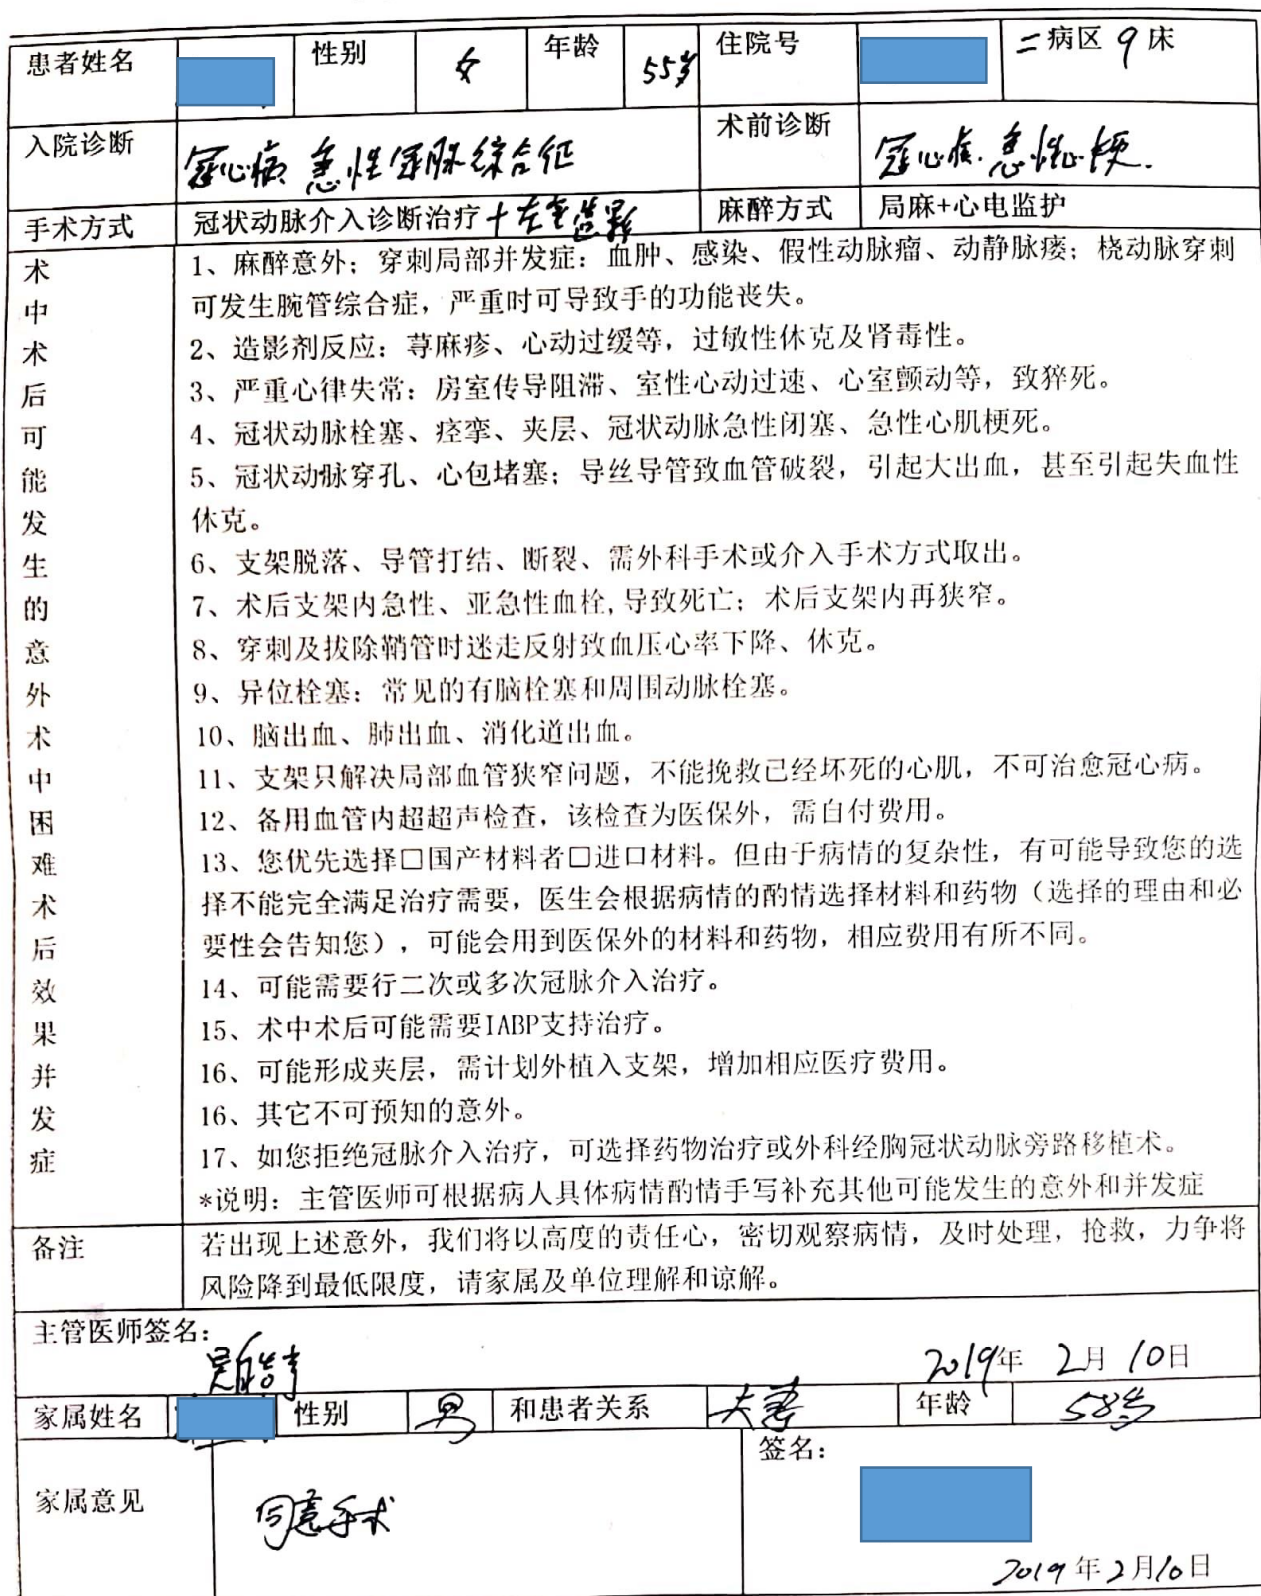 患者姓名 性别 女 年龄 55岁 住院号 二病区 9床
入院诊断 冠心病 急性冠脉综合征 术前诊断 冠心病.急性心梗.
手术方式 冠状动脉介入诊断治疗+左室造影 麻醉方式 局麻+心电监护
术中术后可能发生的意外术中困难术后效果并发症
1、麻醉意外；穿刺局部并发症：血肿、感染、假性动脉瘤、动静脉瘘；桡动脉穿刺
可发生腕管综合症，严重时可导致手的功能丧失。
2、造影剂反应：荨麻疹、心动过缓等，过敏性休克及肾毒性。
3、严重心律失常：房室传导阻滞、室性心动过速、心室颤动等，致猝死。
4、冠状动脉栓塞、痉挛、夹层、冠状动脉急性闭塞、急性心肌梗死。
5、冠状动脉穿孔、心包堵塞；导丝导管致血管破裂，引起大出血，甚至引起失血性
休克。
6、支架脱落、导管打结、断裂、需外科手术或介入手术方式取出。
7、术后支架内急性、亚急性血栓,导致死亡；术后支架内再狭窄。
8、穿刺及拔除鞘管时迷走反射致血压心率下降、休克。
9、异位栓塞：常见的有脑栓塞和周围动脉栓塞。
10、脑出血、肺出血、消化道出血。
11、支架只解决局部血管狭窄问题，不能挽救已经坏死的心肌，不可治愈冠心病。
12、备用血管内超超声检查，该检查为医保外，需自付费用。
13、您优先选择□国产材料者□进口材料。但由于病情的复杂性，有可能导致您的选
择不能完全满足治疗需要，医生会根据病情的酌情选择材料和药物（选择的理由和必
要性会告知您），可能会用到医保外的材料和药物，相应费用有所不同。
14、可能需要行二次或多次冠脉介入治疗。
15、术中术后可能需要IABP支持治疗。
16、可能形成夹层，需计划外植入支架，增加相应医疗费用。
16、其它不可预知的意外。
17、如您拒绝冠脉介入治疗，可选择药物治疗或外科经胸冠状动脉旁路移植术。
*说明：主管医师可根据病人具体病情酌情手写补充其他可能发生的意外和并发症
备注 若出现上述意外，我们将以高度的责任心，密切观察病情，及时处理，抢救，力争将
风险降到最低限度，请家属及单位理解和谅解。
主管医师签名：
2019年 2月 10日
家属姓名 性别 男 和患者关系 夫妻 年龄 58岁
家属意见 同意手术 签名：
2019年2月10日